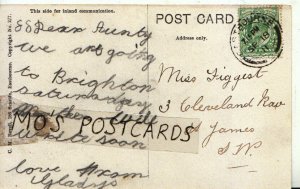 This side for inland communication.
POST CARD
Address only.
88 Dear Aunty
we are going
to Brighton
Saturday
will
write soon
love from
Gladys
Miss Figgest
3 Cleveland Row
St James
S.W.
MO'S POSTCARDS
Eastbourne. Copyright No. 377.